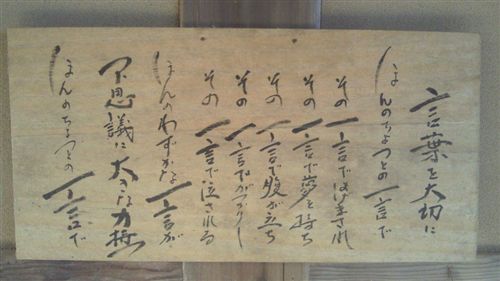 言葉を大切に
ほんのちょっとの一言で
その一言ではげまされ
その一言で夢を持ち
その一言で腹が立ち
その一言でがっかりし
その一言で泣される
ほんのわずかな一言が
不思議に大きな力持
ほんのちょっとの一言で